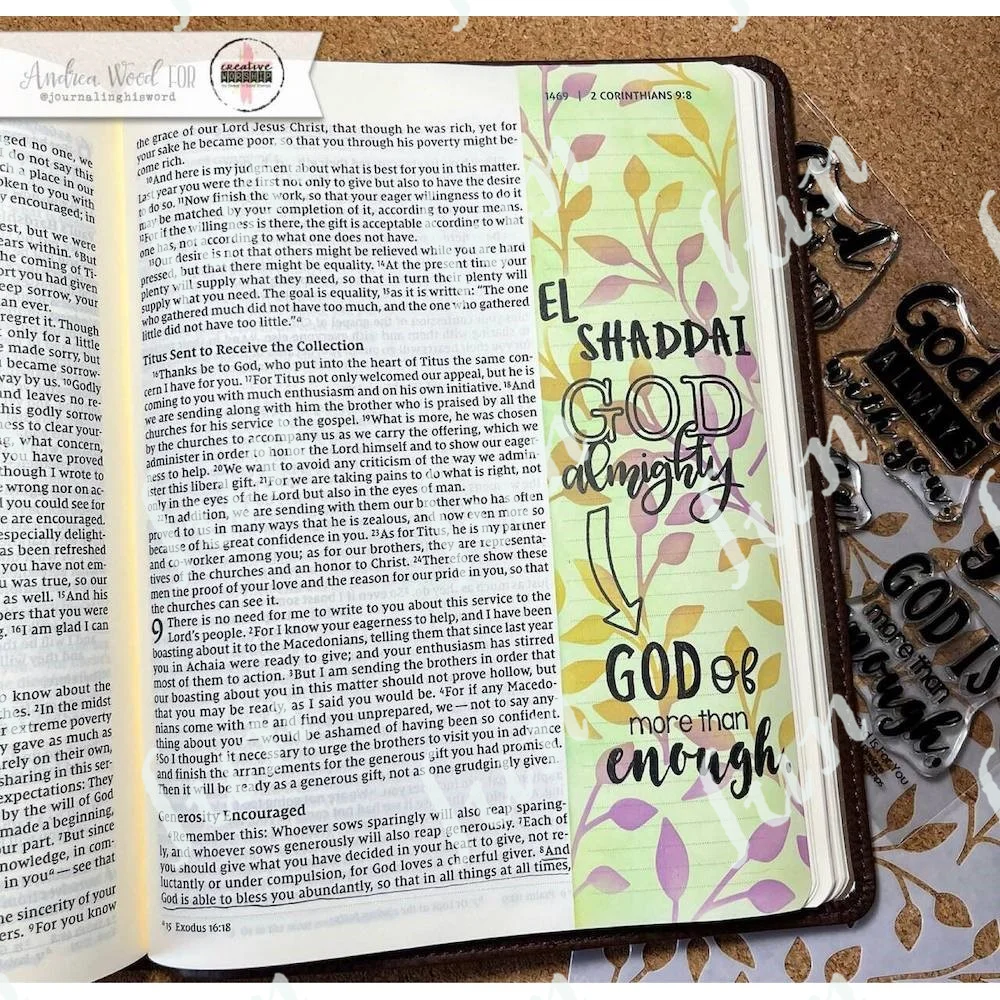 Andrea Wood FOR
@journalinghisword
creative
WORSHIP
1469 | 2 CORINTHIANS 9:8
ged no one, we
I do not say this
ch a place in our
oken to you with
y encouraged; in
est, but we were
ears within. ⁶But
the coming of Ti-
ort you had given
eep sorrow, your
an ever.
regret it. Though
only for a little
made sorry, but
became sorrow-
way by us. ¹⁰Godly
and leaves no re-
this godly sorrow
ness to clear your-
ng, what concern,
you have proved
though I wrote to
wrong nor on ac-
d you could see for
are encouraged.
especially delight-
as been refreshed
you have not em-
u was true, so our
as well. ¹⁵And his
bers that you were
g. ¹⁶I am glad I can
o know about the
hes. ²In the midst
r extreme poverty
y gave as much as
rely on their own,
sharing in this ser-
expectations: They
by the will of God
made a beginning,
ur part. ⁷But since
nowledge, in com-
in youᵃ—see that
ne sincerity of your
ers. ⁹For you know
the grace of our Lord Jesus Christ, that though he was rich, yet for
your sake he became poor, so that you through his poverty might be-
come rich.
¹⁰And here is my judgment about what is best for you in this matter.
Last year you were the first not only to give but also to have the desire
to do so. ¹¹Now finish the work, so that your eager willingness to do it
may be matched by your completion of it, according to your means.
¹²For if the willingness is there, the gift is acceptable according to what
one has, not according to what one does not have.
¹³Our desire is not that others might be relieved while you are hard
pressed, but that there might be equality. ¹⁴At the present time your
plenty will supply what they need, so that in turn their plenty will
supply what you need. The goal is equality, ¹⁵as it is written: “The one
who gathered much did not have too much, and the one who gathered
little did not have too little.”ᵃ
Titus Sent to Receive the Collection
¹⁶Thanks be to God, who put into the heart of Titus the same con-
cern I have for you. ¹⁷For Titus not only welcomed our appeal, but he is
coming to you with much enthusiasm and on his own initiative. ¹⁸And
we are sending along with him the brother who is praised by all the
churches for his service to the gospel. ¹⁹What is more, he was chosen
by the churches to accompany us as we carry the offering, which we
administer in order to honor the Lord himself and to show our eager-
ness to help. ²⁰We want to avoid any criticism of the way we admin-
ister this liberal gift. ²¹For we are taking pains to do what is right, not
only in the eyes of the Lord but also in the eyes of man.
²²In addition, we are sending with them our brother who has often
proved to us in many ways that he is zealous, and now even more so
because of his great confidence in you. ²³As for Titus, he is my partner
and co-worker among you; as for our brothers, they are representa-
tives of the churches and an honor to Christ. ²⁴Therefore show these
men the proof of your love and the reason for our pride in you, so that
the churches can see it.
9 There is no need for me to write to you about this service to the
Lord’s people. ²For I know your eagerness to help, and I have been
boasting about it to the Macedonians, telling them that since last year
you in Achaia were ready to give; and your enthusiasm has stirred
most of them to action. ³But I am sending the brothers in order that
our boasting about you in this matter should not prove hollow, but
that you may be ready, as I said you would be. ⁴For if any Macedo-
nians come with me and find you unprepared, we—not to say any-
thing about you—would be ashamed of having been so confident.
⁵So I thought it necessary to urge the brothers to visit you in advance
and finish the arrangements for the generous gift you had promised.
Then it will be ready as a generous gift, not as one grudgingly given.
Generosity Encouraged
⁶Remember this: Whoever sows sparingly will also reap sparing-
ly, and whoever sows generously will also reap generously. ⁷Each of
you should give what you have decided in your heart to give, not re-
luctantly or under compulsion, for God loves a cheerful giver. ⁸And
God is able to bless you abundantly, so that in all things at all times,
ᵃ 15 Exodus 16:18
EL
SHADDAI
GOD
almighty
GOD of
more than
enough.
God is
ALWAYS
with you
GOD IS
more than
enough.